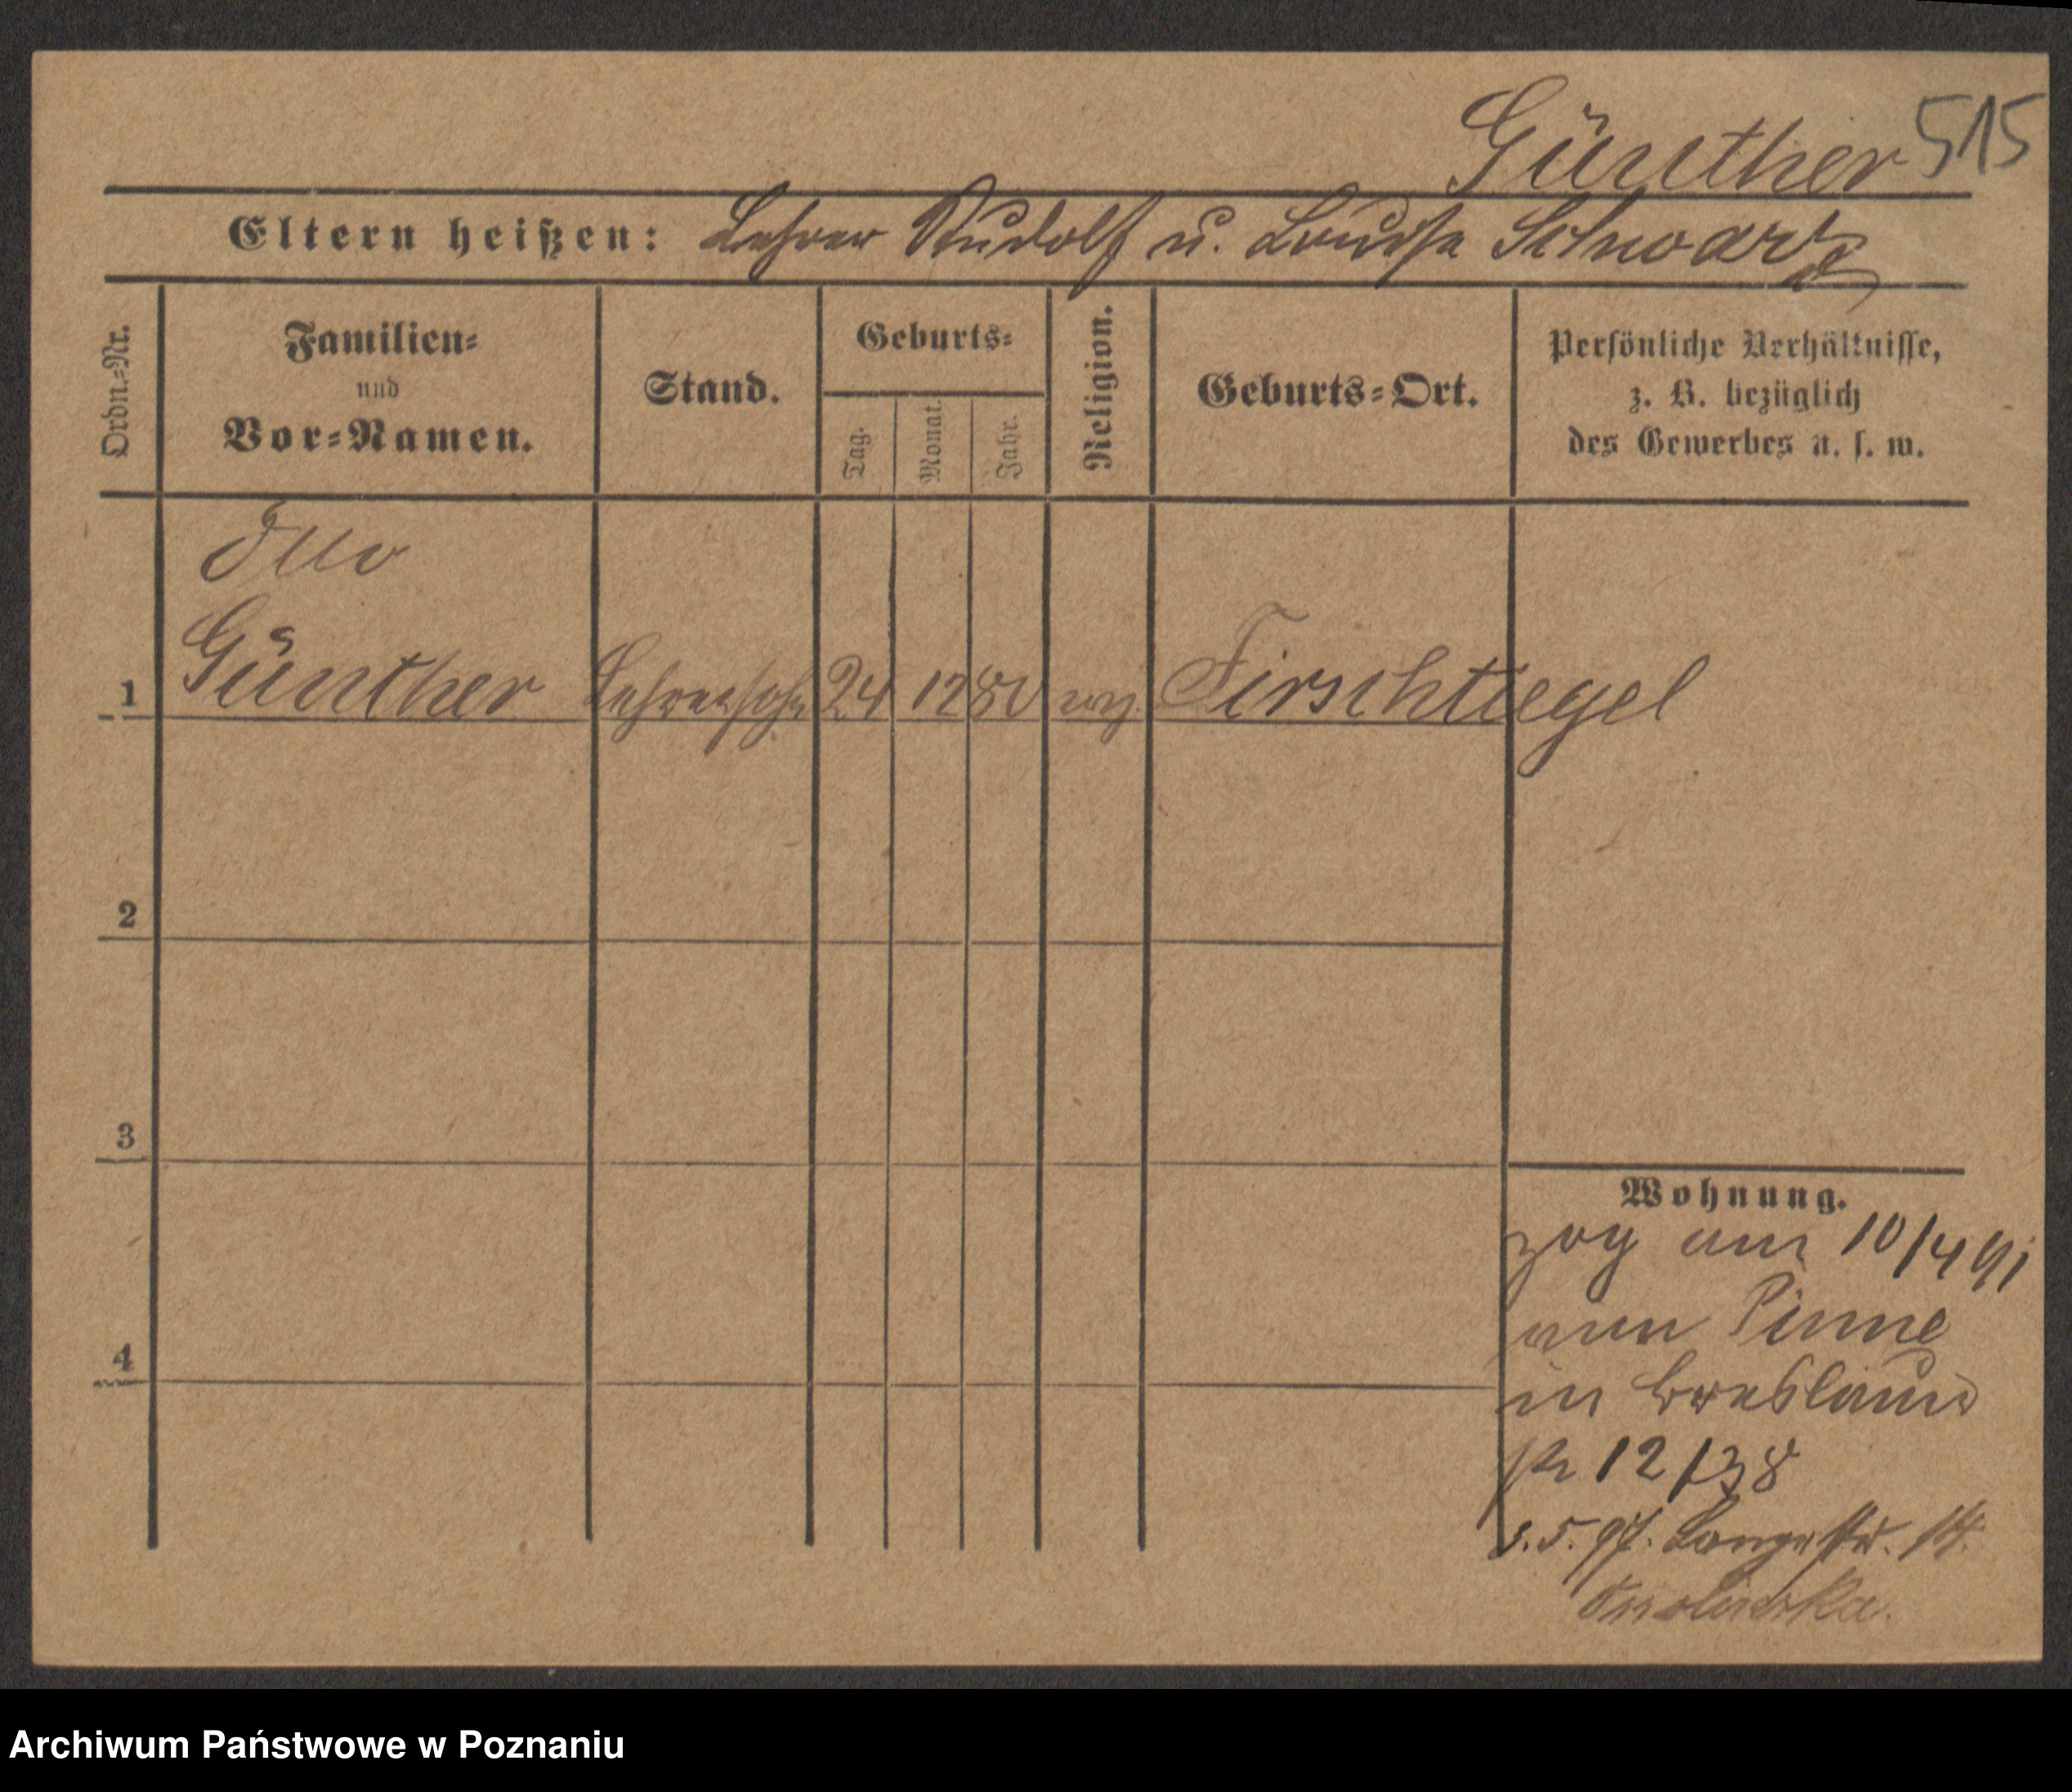 Günther 515
Eltern heißen: Lehrer Rudolf u. Louise Schwarz
Ordn.-Nr.
Familien-
und
Vor-Namen.
Stand.
Geburts-
Tag.
Monat.
Jahr.
Religion.
Geburts-Ort.
Persönliche Verhältnisse,
z. B. bezüglich
des Gewerbes u. s. w.
Otto
1 Günther Lehrersohn 24 12 80 ev. Tirschtiegel
2
3
4
Wohnung.
zog am 10/4 91
von Pinne
in Breslauer
str 12/38
5. 97. Langestr. 14.